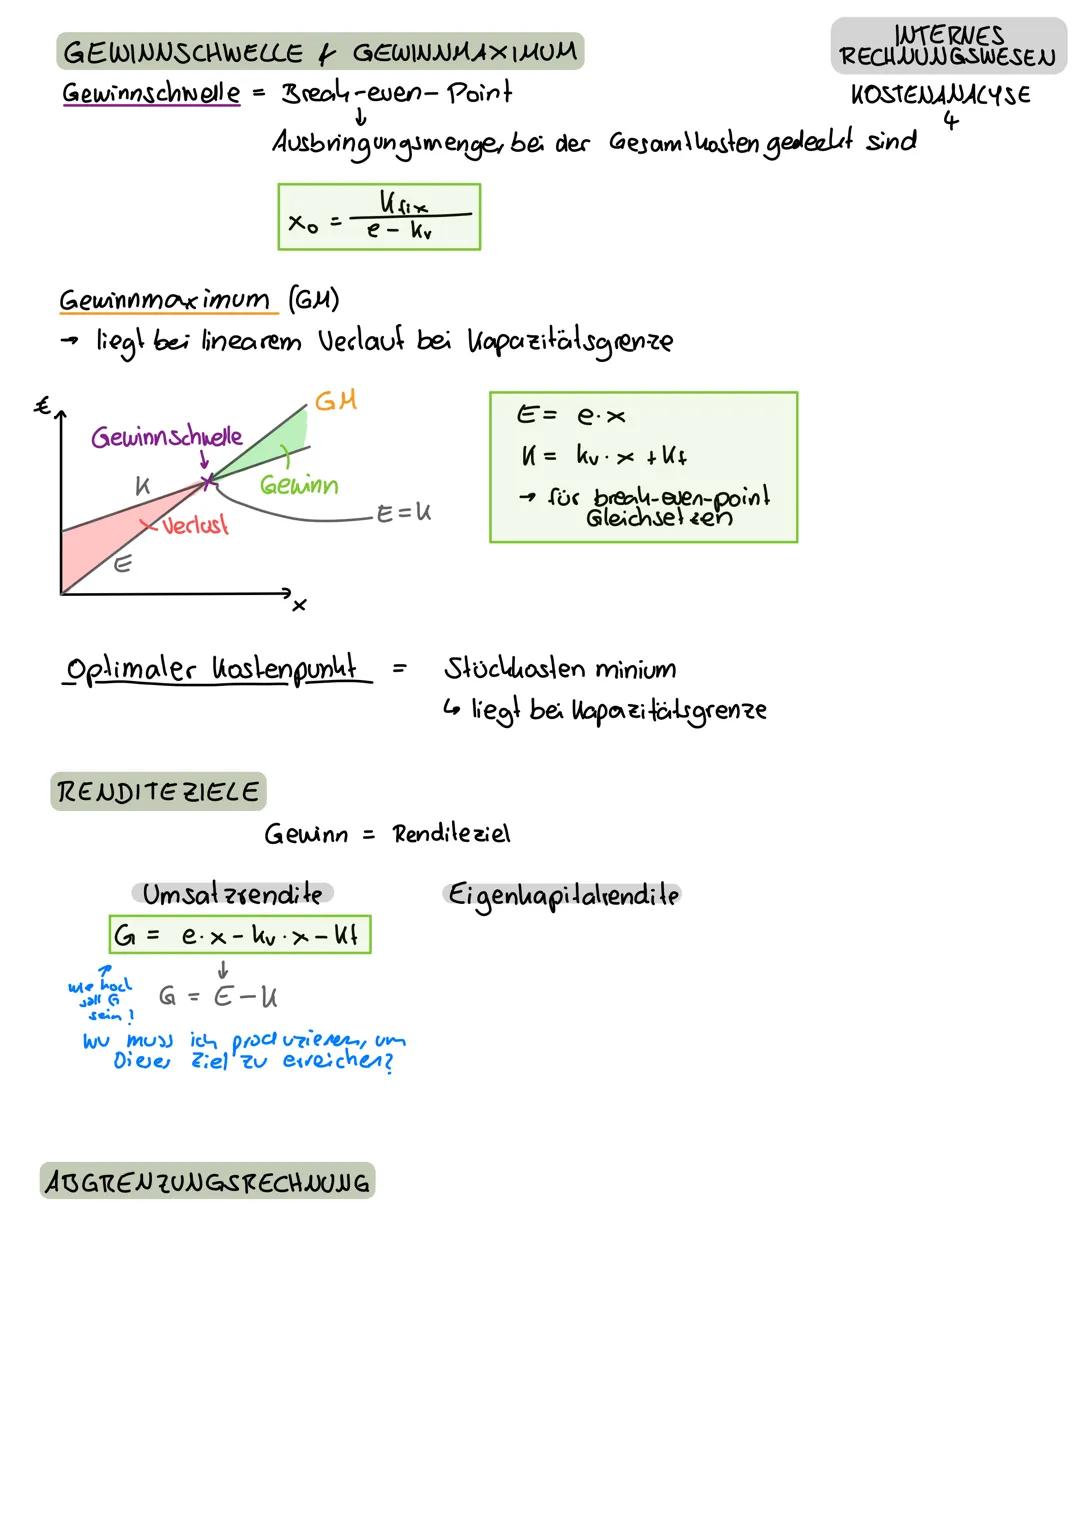 GEWINNSCHWELLE & GEWINNMAXIMUM
INTERNES
RECHNUNGSWESEN
KOSTENANALYSE
4
Gewinnschwelle = Break-even-Point
↓
Ausbringungsmenge, bei der Gesamtkosten gedeckt sind
x₀ = Kfix / e - kv
Gewinnmaximum (GM)
→ liegt bei linearem Verlauf bei Kapazitätsgrenze
€
GM
Gewinnschwelle
K
Gewinn
Verlust
E = K
E
x
E = e·x
K = kv·x + Kf
→ für break-even-point
Gleichsetzen
Optimaler Kostenpunkt = Stückkosten minium
↳ liegt bei Kapazitätsgrenze
RENDITEZIELE
Gewinn = Renditeziel
Umsatzrendite
Eigenkapitalrendite
G = e·x - kv·x - Kf
↓
wie hoch
soll G
sein?
G = E - K
wv muss ich produzieren, um
Dieses Ziel zu erreichen?
ABGRENZUNGSRECHNUNG